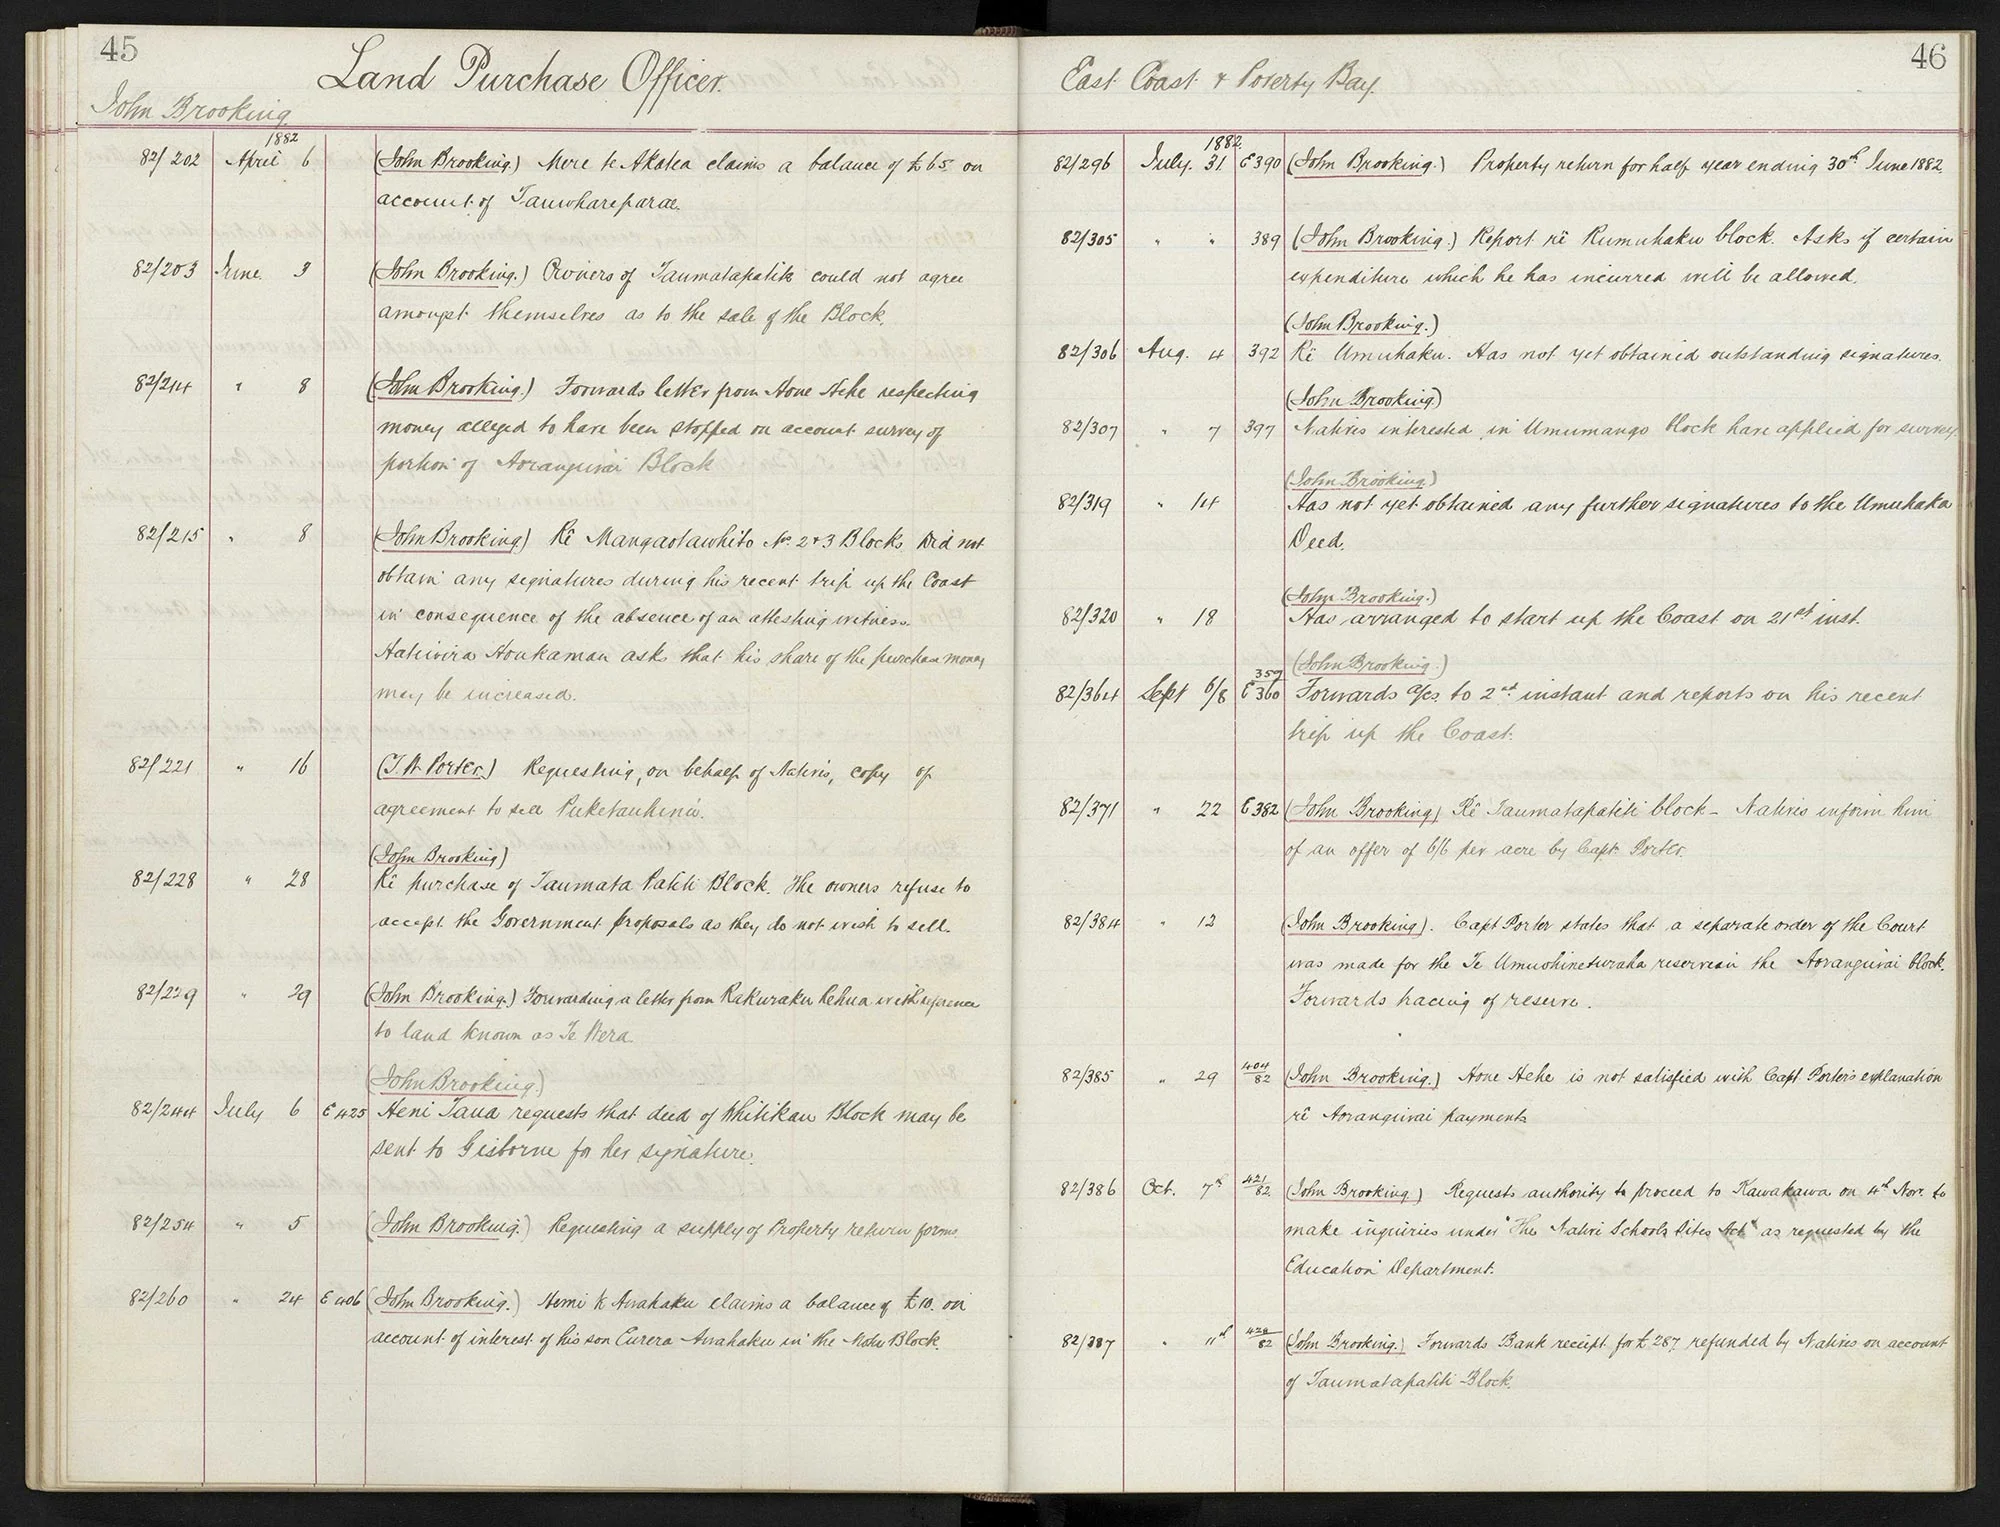 45
Land Purchase Officer.
John Brooking
1882
82/202 April 6 (John Brooking.) Mere te Akatea claims a balance of £65 on
account of Tauwhareparae.
82/203 June 3 (John Brooking.) Owners of Taumatapatiti could not agree
amongst themselves as to the sale of the Block.
82/214 " 8 (John Brooking.) Forwards letter from Hone Hehe respecting
money alleged to have been stopped on account survey of
portion of Aorangiwai Block
82/215 " 8 (John Brooking) Re Mangaotawhito No. 2 & 3 Blocks Did not
obtain any signatures during his recent trip up the Coast
in consequence of the absence of an attesting witness.
asks that his share of the purchase money
may be increased.
82/221 " 16 (T. W. Porter.) Requesting, on behalf of Natives, copy of
agreement to sell Puketauhinu.
(John Brooking)
82/228 " 28 Re purchase of Taumata Patiti Block. The owners refuse to
accept the Government proposals as they do not wish to sell.
82/229 " 29 (John Brooking.) Forwarding a letter from Rakuraku Rehua with reference
to land known as Te Wera
(John Brooking.)
82/244 July 6 E 425 Heni Taua requests that deed of Whitikau Block may be
sent to Gisborne for her signature.
82/254 " 5 (John Brooking.) Requesting a supply of Property return forms.
82/260 " 24 E 406 (John Brooking.) Hemi te Awahaku claims a balance of £10. on
account of interest of his son Eurera Awahaku in the Motu Block.
46
East Coast & Poverty Bay.
1882.
82/296 July. 31 E 390 (John Brooking.) Property return for half year ending 30th June 1882.
82/305 " " 389 (John Brooking.) Report re Rumuhaku block. Asks if certain
expenditure which he has incurred will be allowed.
(John Brooking.)
82/306 Aug. 4 392 Re Umuhaku. Has not yet obtained outstanding signatures.
(John Brooking)
82/307 " 7 397 Natives interested in Umumango block have applied for survey
(John Brooking)
82/319 " 14 Has not yet obtained any further signatures to the Umuhaka
Deed.
(John Brooking.)
82/320 " 18 Has arranged to start up the Coast on 21st inst.
(John Brooking.)
357
82/364 Sept 6/8 E 360 Forwards a/cs. to 2nd instant and reports on his recent
trip up the Coast.
82/371 " 22 E 382 (John Brooking) Re Taumatapatiti block – Natives inform him
of an offer of 6/6 per acre by Capt. Porter.
82/384 " 12 (John Brooking). Capt Porter states that a separate order of the Court
was made for the Te reserve in the Aorangiwai block.
Forwards tracing of reserve.
82/385 " 29 404/82 (John Brooking.) Hone Hehe is not satisfied with Capt. Porter's explanation
re Aorangiwai payments
82/386 Oct. 7th 421/82 (John Brooking.) Requests authority to proceed to Kawakawa on 4th Nov. to
make inquiries under "The Native Schools Sites Act" as requested by the
Education Department.
82/387 " 11th 429/82 (John Brooking.) Forwards Bank receipt for £287 refunded by Natives on account
of Taumatapatiti Block.